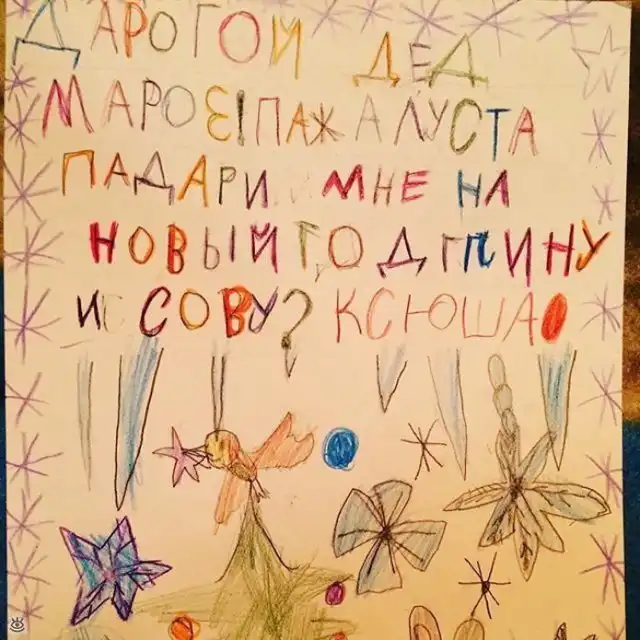 ДАРОГОЙ ДЕД
МАРОЕ!ПАЖАЛУСТА
ПАДАРИ МНЕ НА
НОВЫЙ ГОД ПИНУ
И СОВУ? КСЮША